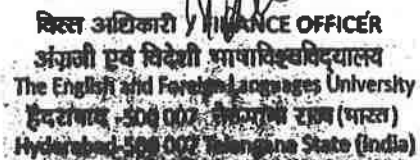 वित्त अधिकारी / FINANCE OFFICER
अंग्रजी एवं विदेशी भाषा विश्वविद्यालय
The English and Foreign Languages University
हैदराबाद -500 007, तेलंगाना राज्य (भारत)
Hyderabad-500 007 Telangana State (India)